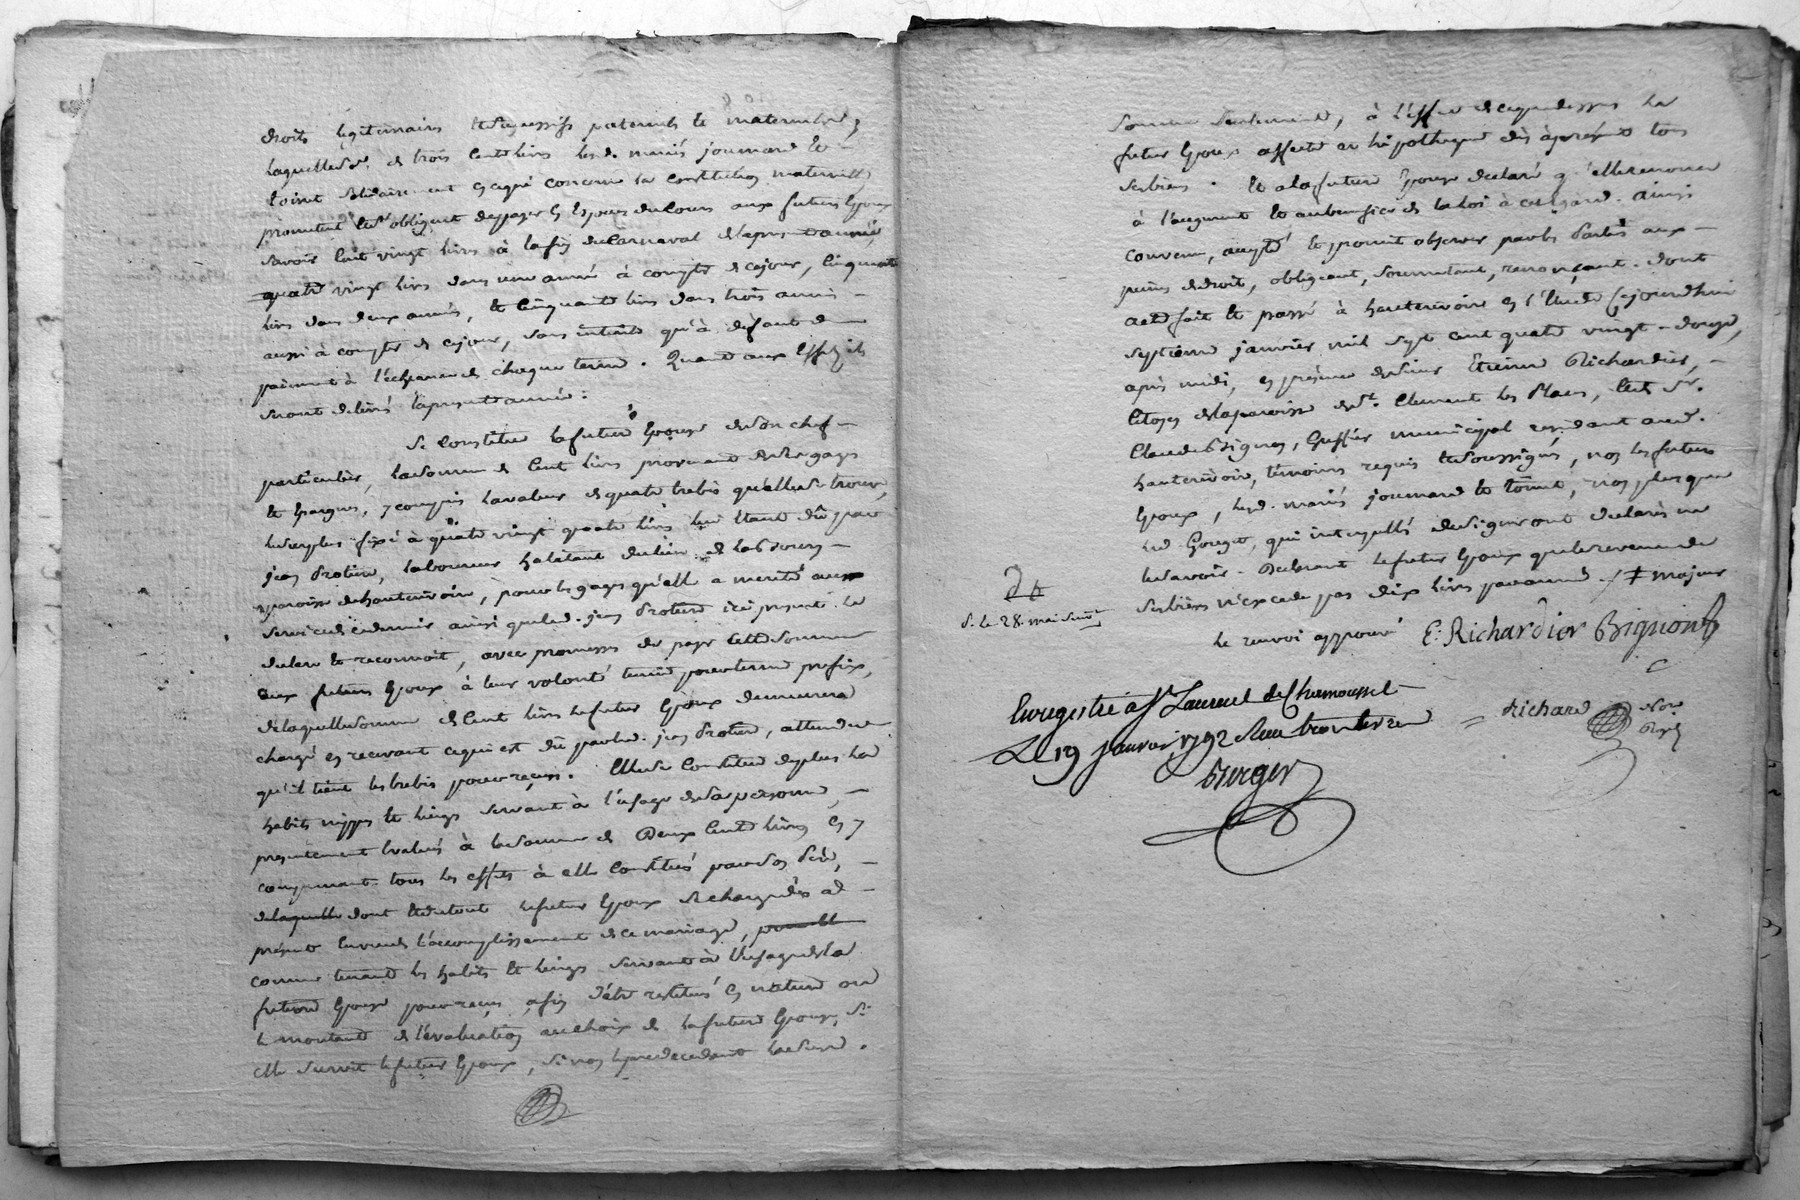 droits légitimaires et successifs paternels et maternels,
laquelle de trois cent livres lesd. mariés journard et
solidairement en ce qui concerne la constitution maternelle
promettent et s'obligent de payer en espèces de cours aux futurs Epoux
savoir cent vingt livres à la fin du Carnaval de la presente année,
quatre vingt livres dans une année à compter de ce jour, cinquante
livres dans deux années, et cinquante livres dans trois années
aussi à compter de ce jour, sans intérêt qu'à défaut de
paiement à l'échéance de chaque terme. Quant aux effets ils
seront delivrés la presente année.
Se constitue la future Epouse de son chef
particulier, la somme de cent livres provenant de ses gages
et Epargnes, y compris la valeur de quatre brebis qu'elle se trouve,
le surplus fixé à quatre vingt quatre livres lui étant dû par
jean protière, laboureur habitant du lieu de
paroisse de hauterivoire, pour les gages qu'elle a merité au
service de ce dernier ainsi que led. jean protière ici présent le
declare et reconnoit, avec promesses de payer cette somme
aux futurs Epoux à leur volonté tenue pour terme prefix,
de laquelle somme de cent livres le futur Epoux demeurera
chargé en recevant ce qui est dû par led. jean protière, attendu
qu'il tient les brebis pour reçues. Elle se constitue de plus les
habits nippes et linges servant à l'usage de sa personne,
presentement évalués à la somme de Deux cent livres en y
comprenant tous les effets à elle constitués par son père,
de laquelle dont et du tout le futur Epoux se charge dès à
présent en vue de l'accomplissement de ce mariage,
comme tenant les habits et linges servant à l'usage de la
future Epouse pour reçus, afin d'être restitués en nature ou
le montant de l'évaluation au choix de la future Epouse, si
elle survit le futur Epoux, si non le predecedant la
somme seulement, à l'effet de ce que dessus le
futur Epoux affecte et hipotheque dès à présent tous
ses biens. Et a la future Epouse declaré q. elle renonce
à l'augment et au benefice de la loi à ce égard. Ainsi
convenu, accepté et promit observer par les parties aux
peines de droit, obligeant, soumettant, renonçant. dont
acte fait et passé à hauterivoire en l'Etude Cejourdhui
septieme janvier mil sept cent quatre vingt-douze,
après midi, en présence de sieur Etienne Richardier,
Citoyen de la paroisse de St. Clement les Places, et de Sr.
Claude Bignon, Greffier municipal residant aud.
hauterivoire, témoins requis et soussignés, non les futurs
Epoux, lesd. mariés journard et, non plus que
led, qui interpellés de signer ont declarés ne
le savoir. Declarant le futur Epoux que le revenu de
ses biens n'excede pas dix livres par année. / ‡ majeur
le renvoi approuvé E: Richardier Bignon
S. le 28. mai
Enregistré à St Laurent de Chamousset
Le 19 janvier 1792 Reçu
Berger
Richard